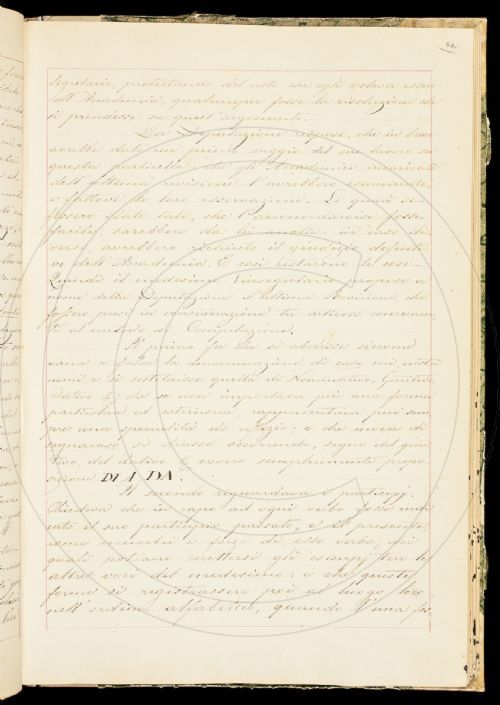 segretario, protestando del resto che egli voleva esser
coll'Accademia, qualunque fosse la risoluzione che
si prendesse su quest'argomento.
La Deputazione rispose, che in breve
avrebbe dato un piccolo saggio del suo lavoro su
questa particella; che gli Accademici incaricati
dell'ultima revisione l'avrebbero esaminato,
e fattevi le loro osservazioni. Le quali se
fossero state tali, che l'accomodarvisi fosse
facile, sarebbero da lei accolte; in caso di-
verso, avrebbero richiesto il giudizio definiti-
vo dell'Accademia. E così restarono le cose.
Quindi il medesimo Vicesegretario propose a
nome della Deputazione d'ultima revisione, che
fossero presi in considerazione tre articoli concernen-
ti al metodo di Compilazione.
Il primo fu che si abolisse siccome
vana e falsa la denominazione di caso nei nostri
nomi, e si sostituisse quella di Nominativo, Genitivo
Dativo &; che se non importava più una forma
particolare ed estrinseca, rappresentava pur sem-
pre una specialità di uffizio; e che invece di
segnacaso si dicesse occorrendo, segno del geni-
tivo, del dativo &, ovvero semplicemente prepo-
sizione DI A DA.
Il secondo riguardava i participj.
Chiedeva che in capo ad ogni verbo fosse indi-
cato il suo participio passato, e il presente,
come membri e forze di esso verbo; dei
quali potevano mettersi gli esempj tra le
altre voci del medesimo; e che queste
forme si registrassero poi al luogo loro
nell'ordine alfabetico, quando l'una fos-